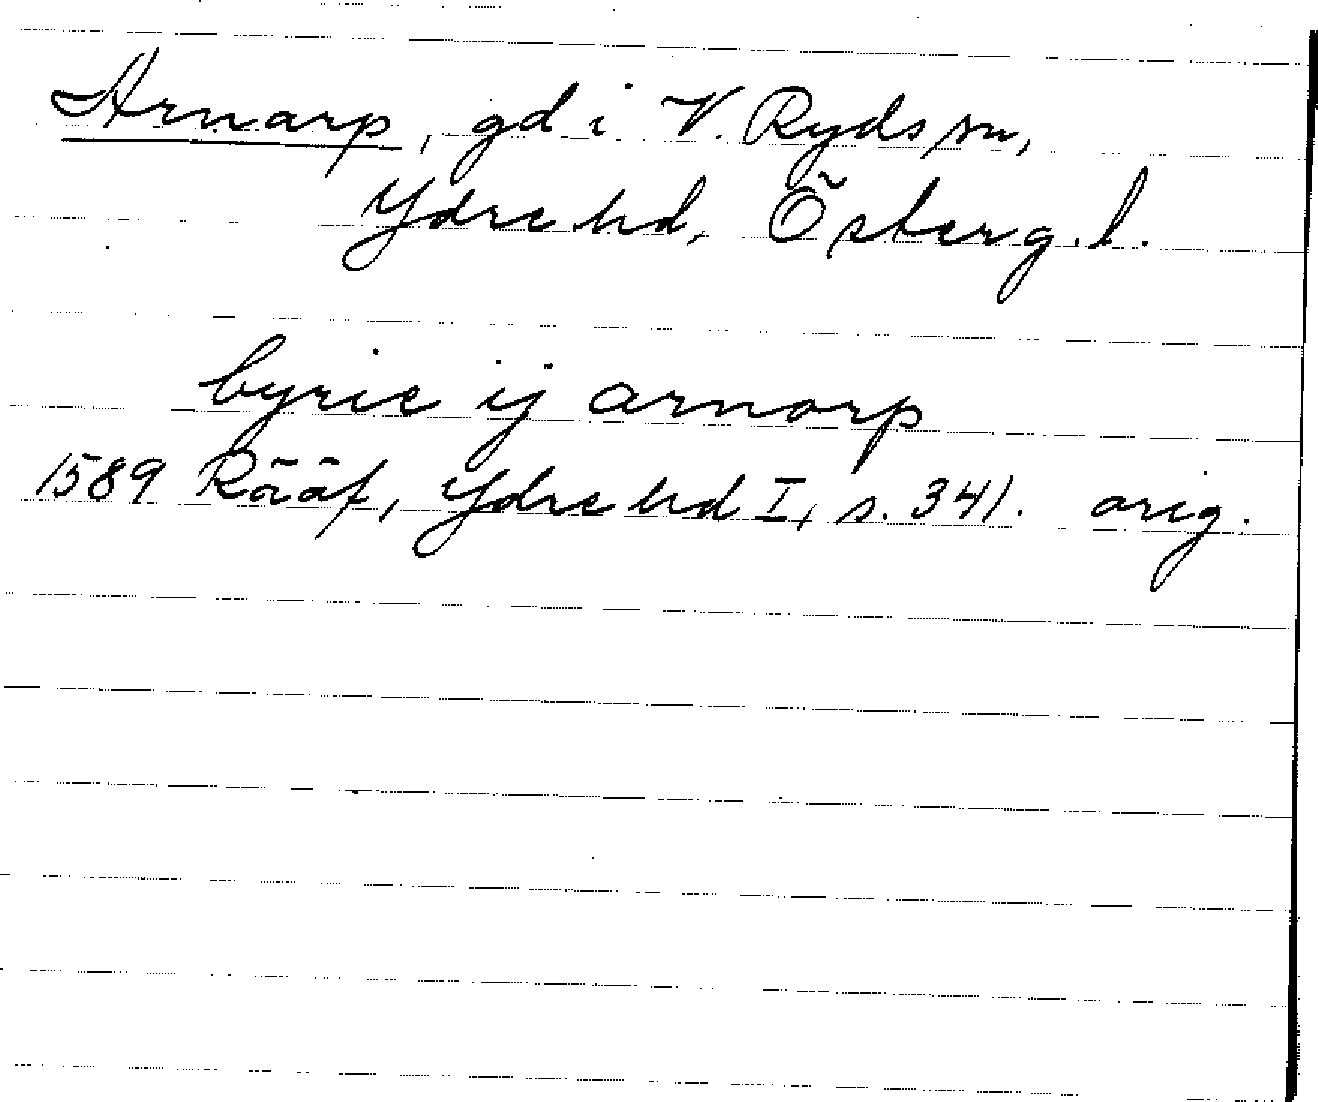 Arnarp, gd i V. Ryds sn,
Ydre hd, Österg. l.
byrie ij arnarp
1589 Rääf, Ydre hd I, s. 341. orig.